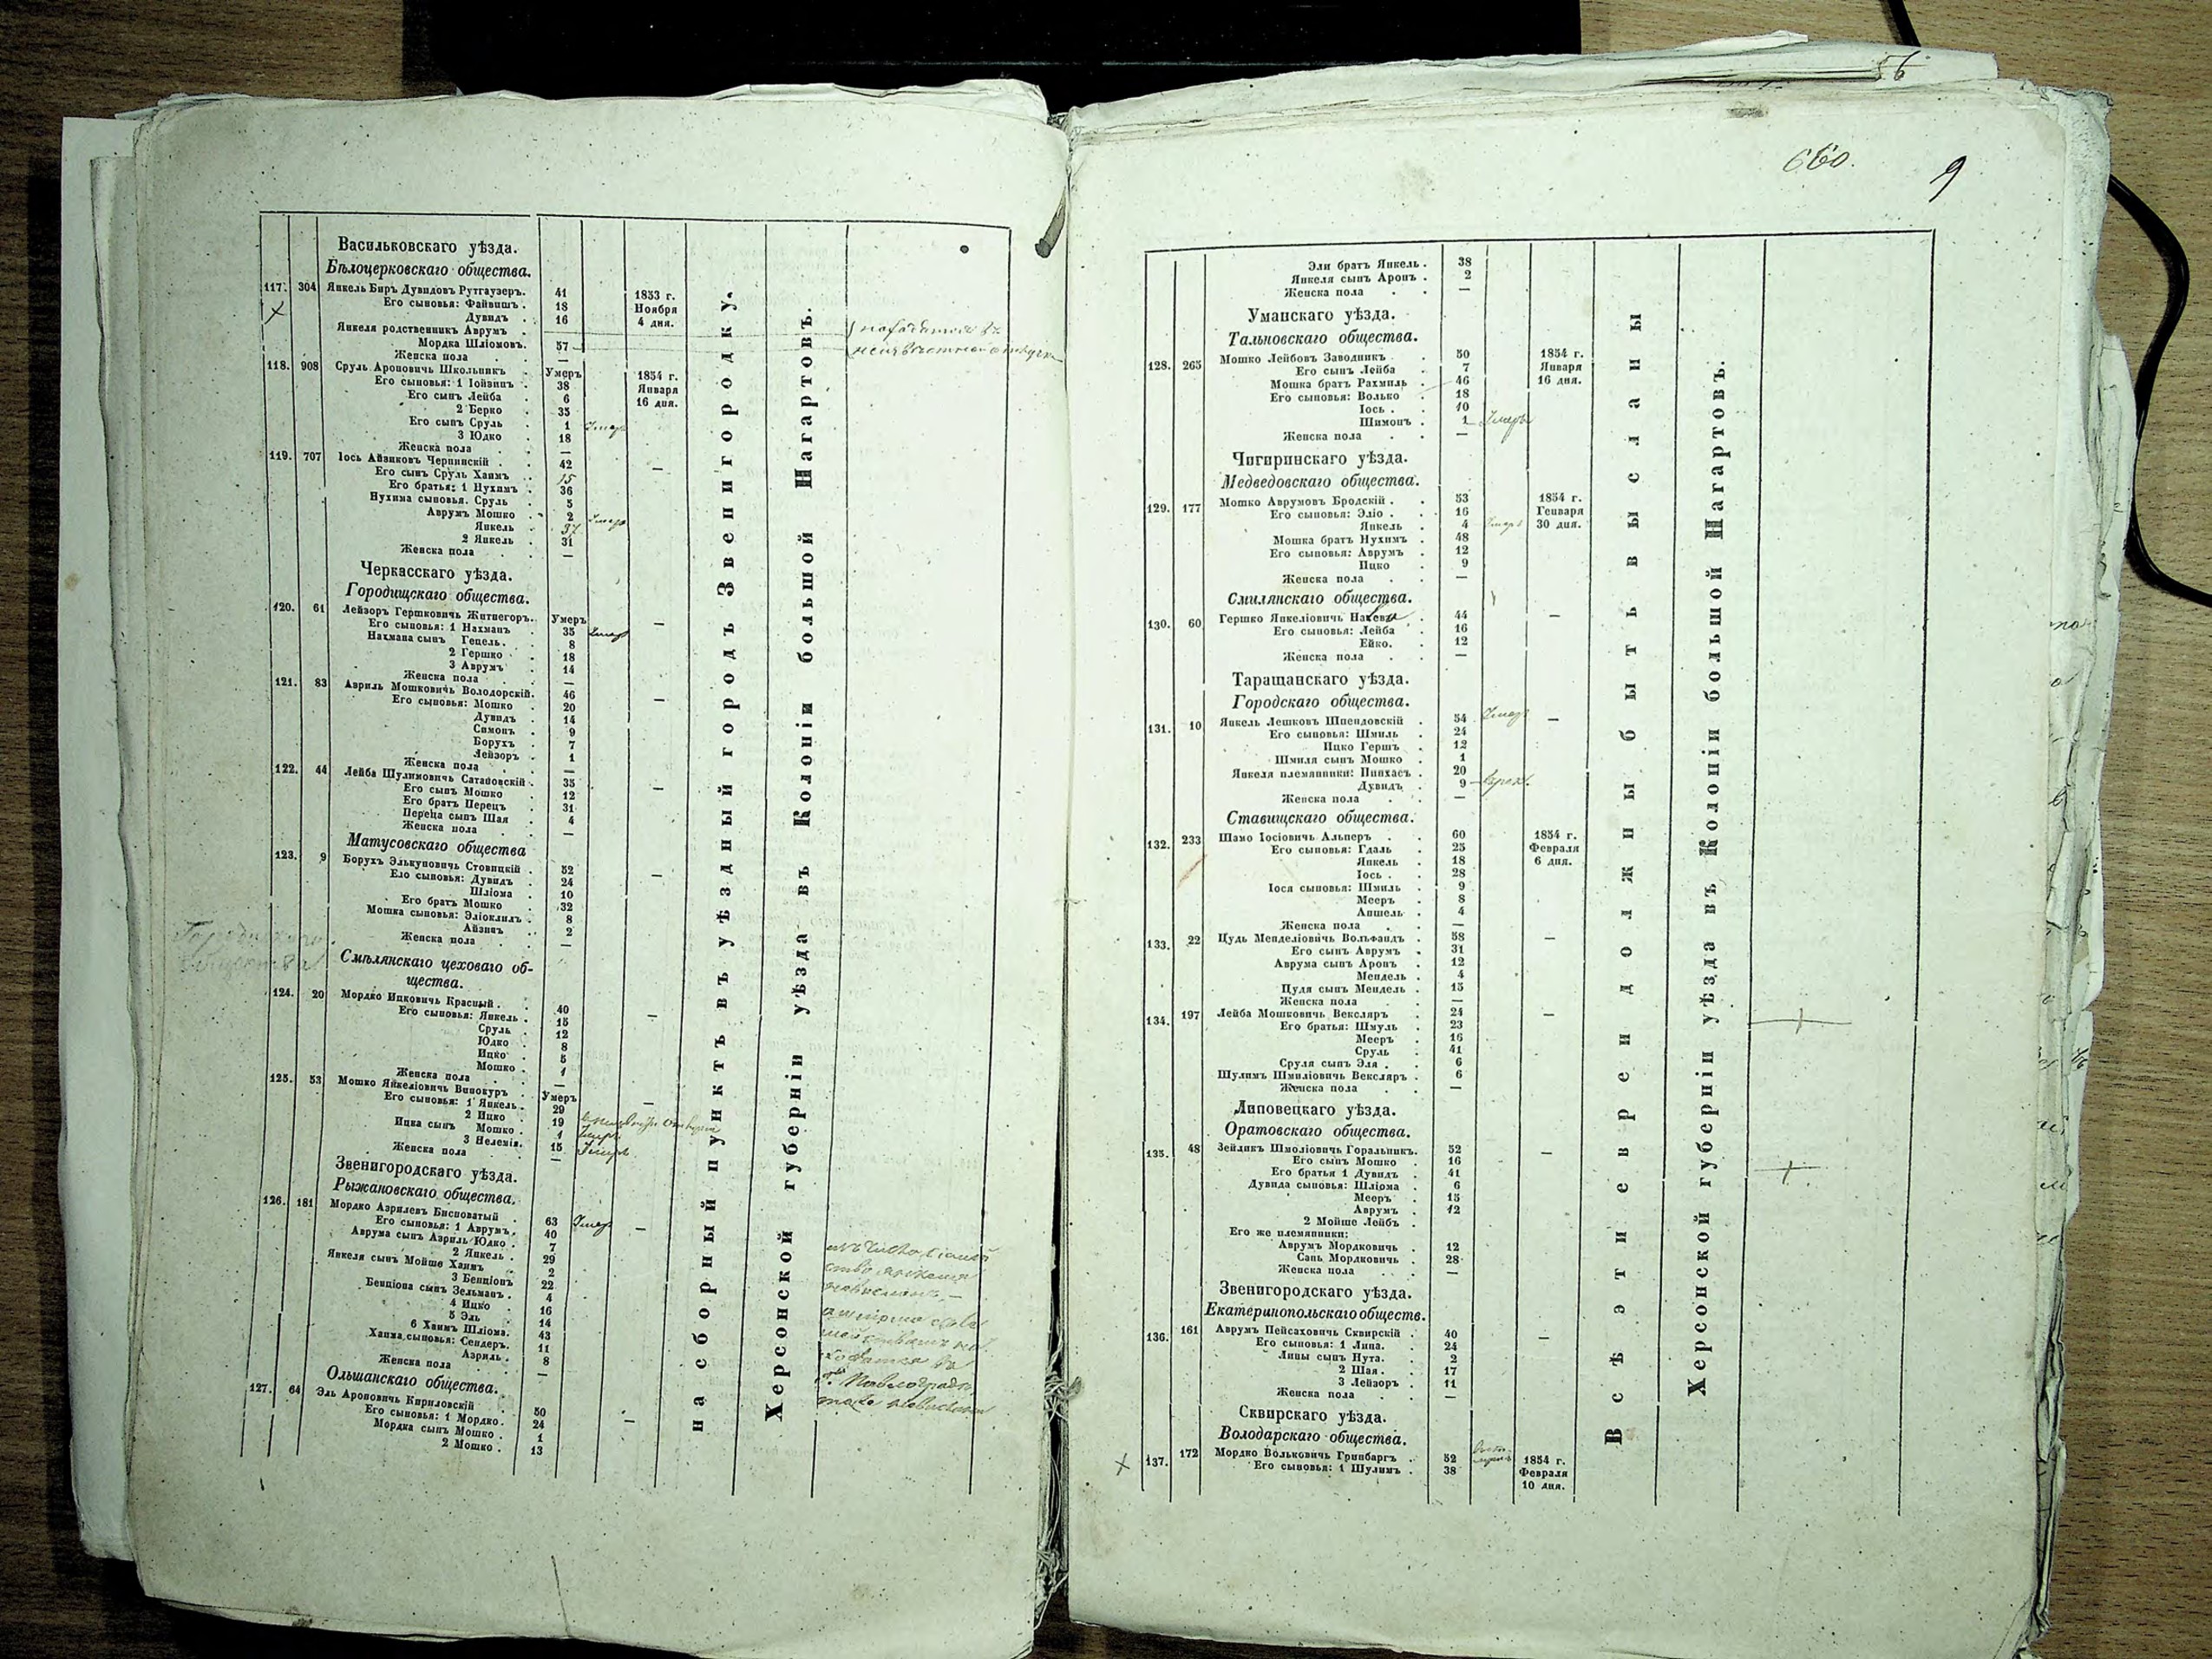 Васильковскаго уѣзда.
Бѣлоцерковскаго общества.
117. 304 Янкель Биръ Дувидовъ Рутгаузеръ. 41 1853 г.
Его сыновья: Файвишъ . 18 Ноября
Дувидъ . 16 4 дня.
Янкеля родственникъ Аврумъ .
Мордка Шліомовъ. 57
Женска пола . . —
118. 908 Сруль Ароновичъ Школьникъ . Умеръ 1854 г.
Его сыновья: 1 Іойзипъ . 38 Января
Его сынъ Лейба . 6 16 дня.
2 Берко . 35
Его сынъ Сруль . 1 Умеръ
3 Юдко . 18
Женска пола . . —
119. 707 Іось Айзиковъ Черпинскій . . 42 —
Его сынъ Сруль Хаимъ . 15
Его братья: 1 Нухимъ . 36
Нухима сыновья. Сруль . 5
Аврумъ Мошко . 2 Умеръ
Янкель . 37
2 Янкель . 31
Женска пола . . —
Черкасскаго уѣзда.
Городищскаго общества.
120. 61 Лейзоръ Гершковичъ Житнегоръ. Умеръ —
Его сыновья: 1 Нахманъ . 35 Умеръ
Нахмана сынъ Генель. . 8
2 Гершко . 18
3 Аврумъ . 14
Женска пола . . —
121. 83 Азриль Мошковичъ Володорскій. 46 —
Его сыновья: Мошко . 20
Дувидъ . 14
Симонъ . 9
Борухъ . 7
Лейзоръ . 1
Женска пола . . —
122. 44 Лейба Шулимовичъ Сатановскій . 35 —
Его сынъ Мошко . 12
Его братъ Перецъ . 31
Переца сынъ Шая . 4
Женска пола . . —
Матусовскаго общества
123. 9 Борухъ Элькуновичъ Стовицкій . 52 —
Его сыновья: Дувидъ . 24
Шліома . 10
Его братъ Мошко . 32
Мошка сыновья: Эліокилъ . 8
Айзикъ . 2
Женска пола . . —
Городищскаго
общества
Смѣлянскаго цеховаго об-
щества.
124. 20 Мордко Ицковичъ Красный . . 40 —
Его сыновья: Янкель . 15
Сруль . 12
Юдко . 8
Ицко . 5
Мошко . 1
Женска пола . . —
125. 53 Мошко Янкеліовичъ Винокуръ . Умеръ —
Его сыновья: 1 Янкель . 29
2 Ицко . 19
Ицка сынъ Мошко . 1 Умеръ
3 Нелемія. 15 Умеръ.
Женска пола . . —
Звенигородскаго уѣзда.
Рыжановскаго общества.
126. 181 Мордко Азрилевъ Бисноватый . 63 Умеръ —
Его сыновья: 1 Аврумъ. 40
Аврума сынъ Азриль Юдко . 7
2 Янкель . 29
Янкеля сынъ Мойше Хаимъ . 2
3 Бенціонъ 22
Бенціона сынъ Зельманъ . 4
4 Ицко . 16
5 Эль . 14
6 Хаимъ Шліома. 43
Хаима сыновья: Сендеръ. 11
Азриль. 8
Женска пола . . —
Ольшанскаго общества.
127. 64 Эль Ароновичъ Кириловскій . 50 —
Его сыновья: 1 Мордко. 24
Мордка сынъ Мошко . 1
2 Мошко . 13
на сборный пунктъ въ уѣздный городъ Звенигородку.
Херсонской губерніи уѣзда въ Колоніи большой Нагартовъ.
660.
9
Эли братъ Янкель . 38
Янкеля сынъ Аронъ . 2
Женска пола . . —
Уманскаго уѣзда.
Тальновскаго общества.
128. 265 Мошко Лейбовъ Заводникъ . 50 1854 г.
Его сынъ Лейба . 7 Января
Мошка братъ Рахмиль . 46 16 дня.
Его сыновья: Волько . 18
Іось . . 10
Шимонъ . 1 Умеръ
Женска пола . . —
Чигиринскаго уѣзда.
Медведовскаго общества.
129. 177 Мошко Аврумовъ Бродскій . . 53 1854 г.
Его сыновья: Эліо . . 16 Генваря
Янкель . 4 Умеръ 30 дня.
Мошка братъ Нухимъ . 48
Его сыновья: Аврумъ . 12
Ицко . 9
Женска пола . . —
Смилянскаго общества.
130. 60 Гершко Янкеліовичъ . 44 —
Его сыновья: Лейба . 16
Ейко. . 12
Женска пола . . —
Таращанскаго уѣзда.
Городскаго общества.
131. 10 Янкель Лешковъ Шпендовскій . 54 Умеръ —
Его сыновья: Шмиль . 24
Ицко Гершъ . 12
Шмиля сынъ Мошко . 1
Янкеля племянники: Пинхасъ . 20
Дувидъ . 9
Женска пола . . —
Ставищскаго общества.
132. 233 Шамо Іосіовичъ Альперъ . . 60 1854 г.
Его сыновья: Гдаль . 25 Февраля
Янкель . 18 6 дня.
Іось . . 28
Іося сыновья: Шмиль . 9
Мееръ . 8
Аншель . 4
Женска пола . . —
133. 22 Цудь Менделіовичъ Вольфандъ . 58 —
Его сынъ Аврумъ . 31
Аврума сынъ Аронъ . 12
Мендель . 4
Цудя сынъ Мендель . 15
Женска пола . . —
134. 197 Лейба Мошковичъ Векслярь . 24 —
Его братья: Шмуль . 23
Мееръ . 16
Сруль . 41
Сруля сынъ Эля . . 6
Шулимъ Шмиліовичъ Векслярь . 6
Женска пола . . —
Липовецкаго уѣзда.
Оратовскаго общества.
135. 48 Зейликъ Шмоліовичъ Горальникъ. 52 —
Его сынъ Мошко . 16
Его братья 1 Дувидъ . 41
Дувида сыновья: Шліома . 6
Мееръ . 15
Аврумъ . 12
2 Мойше Лейбъ .
Его же племянники:
Аврумъ Мордковичъ . 12
Сань Мордковичъ . 28
Женска пола . . . —
Звенигородскаго уѣзда.
Екатеринопольскаго обществ.
136. 161 Аврумъ Пейсаховичъ Сквирскій . 40 —
Его сыновья: 1 Липа. . 24
Липы сынъ Нута. . 2
2 Шая . . 17
3 Лейзоръ . 11
Женска пола . . —
Сквирскаго уѣзда.
Володарскаго общества.
137. 172 Мордко Вольковичъ Гринбаргъ . 52 1854 г.
Его сыновья: 1 Шулимъ . 38 Февраля
10 дня.
Всѣ эти евреи должны быть высланы
Херсонской губерніи уѣзда въ Колоніи большой Нагартовъ.